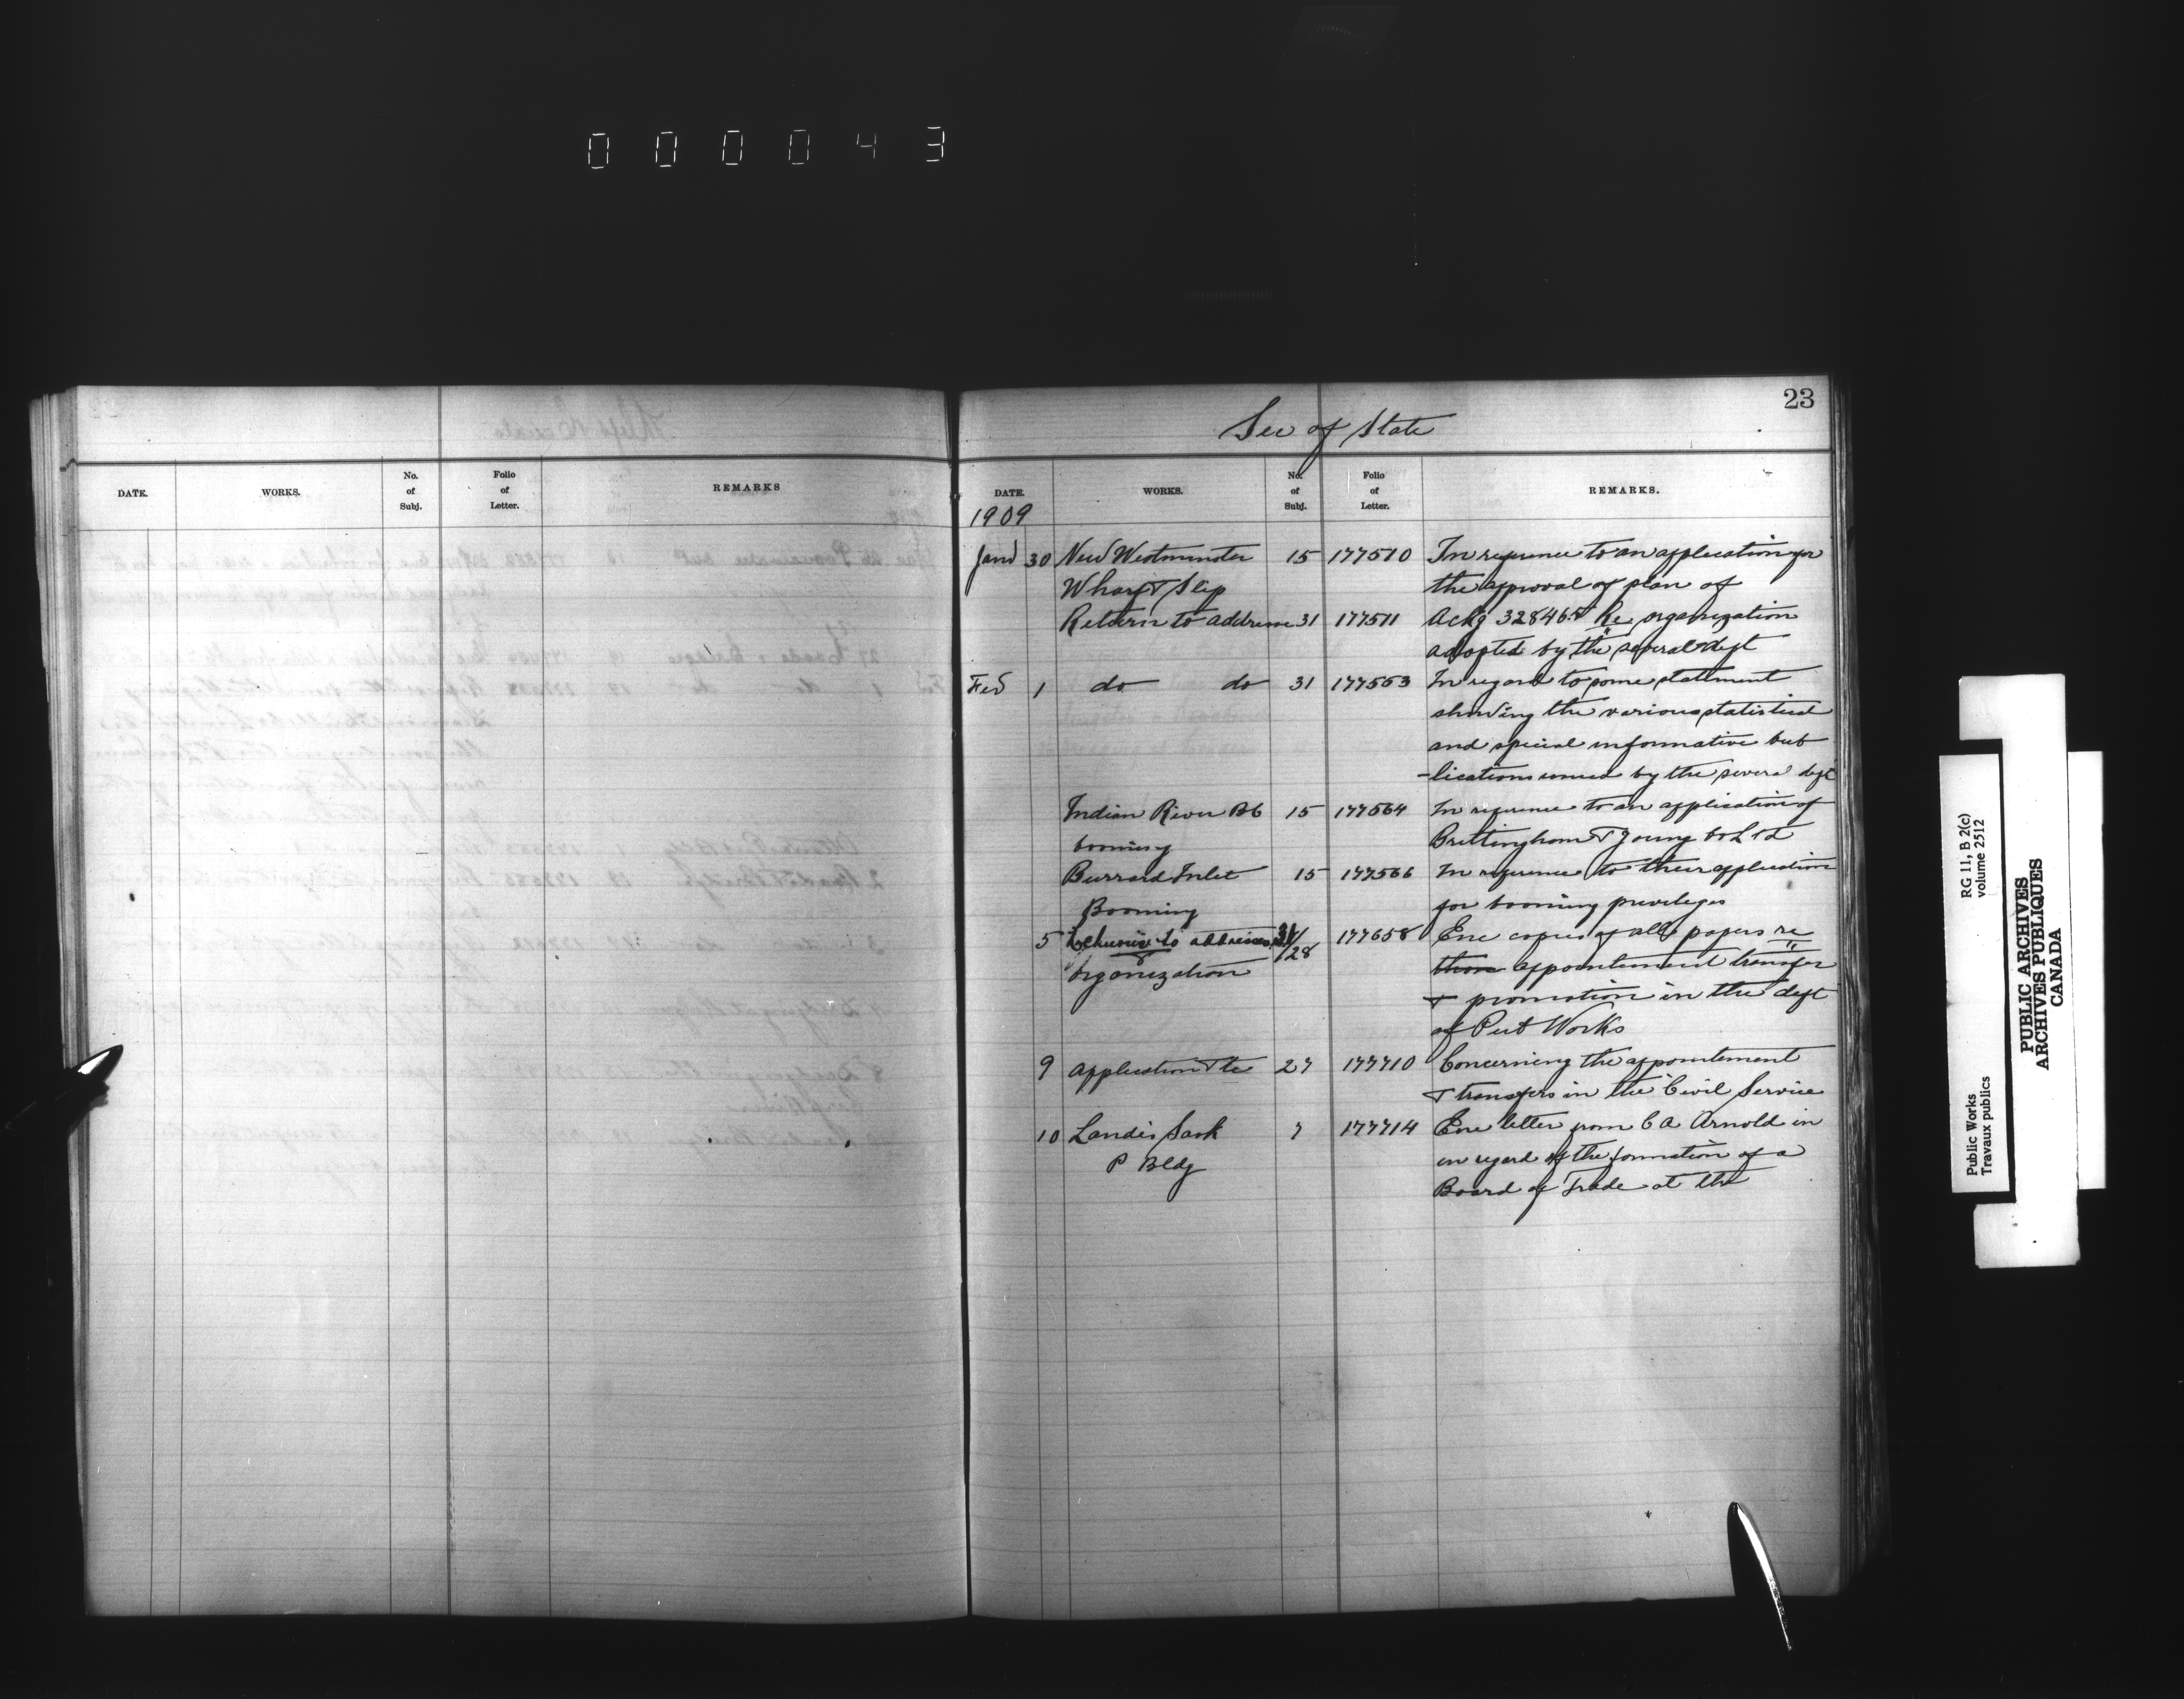 000043
23
Sec of State
DATE. WORKS. No. of Subj. Folio of Letter. REMARKS
DATE. WORKS. No. of Subj. Folio of Letter. REMARKS.
1909
Jany 30 New Westminster 15 177510 In reference to an application for
Wharf & Slip the approval of plan of
Return to address 31 177511 Ackg 328465 Re organization
adopted by the several dept
Feb 1 do do 31 177563 In regard to some statement
showing the various statistical
and special informative pub
-lications issued by the several dept
Indian River BC 15 177564 In reference to an application of
booming Brettingham & Young Co Ltd
Burrard Inlet 15 177566 In reference to their application
Booming for booming privileges
5 to addresses 31/28 177658 Enc copies of all papers re
organization appointment transfer
& promotion in the dept
of Pub Works
9 Application &tc 27 177710 Concerning the appointement
& transfers in the Civil Service
10 Landis Sask 7 177714 Enc letter from C A Arnold in
P Bldg in regard of the formation of a
Board of Trade at the
Public Works
Travaux publics
RG 11, B 2(c)
volume 2512
PUBLIC ARCHIVES
ARCHIVES PUBLIQUES
CANADA